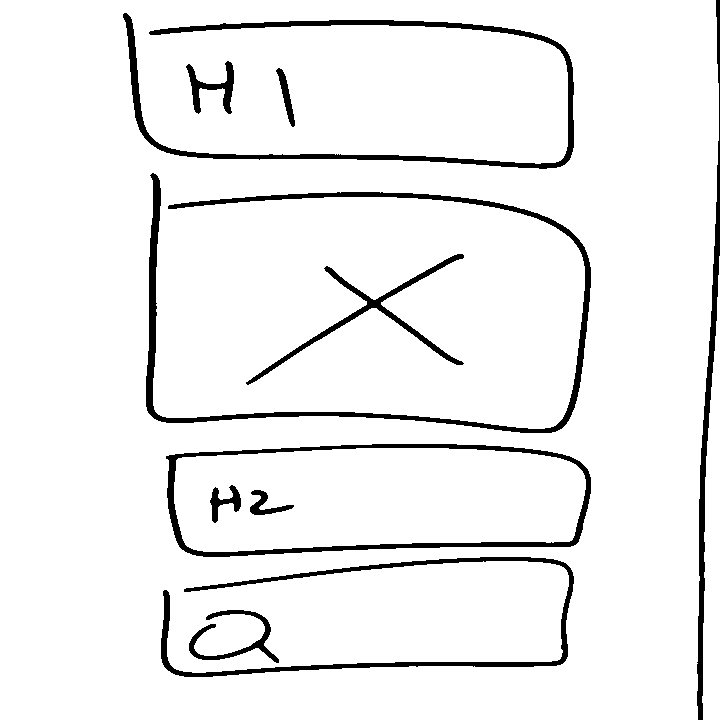 H1
H2